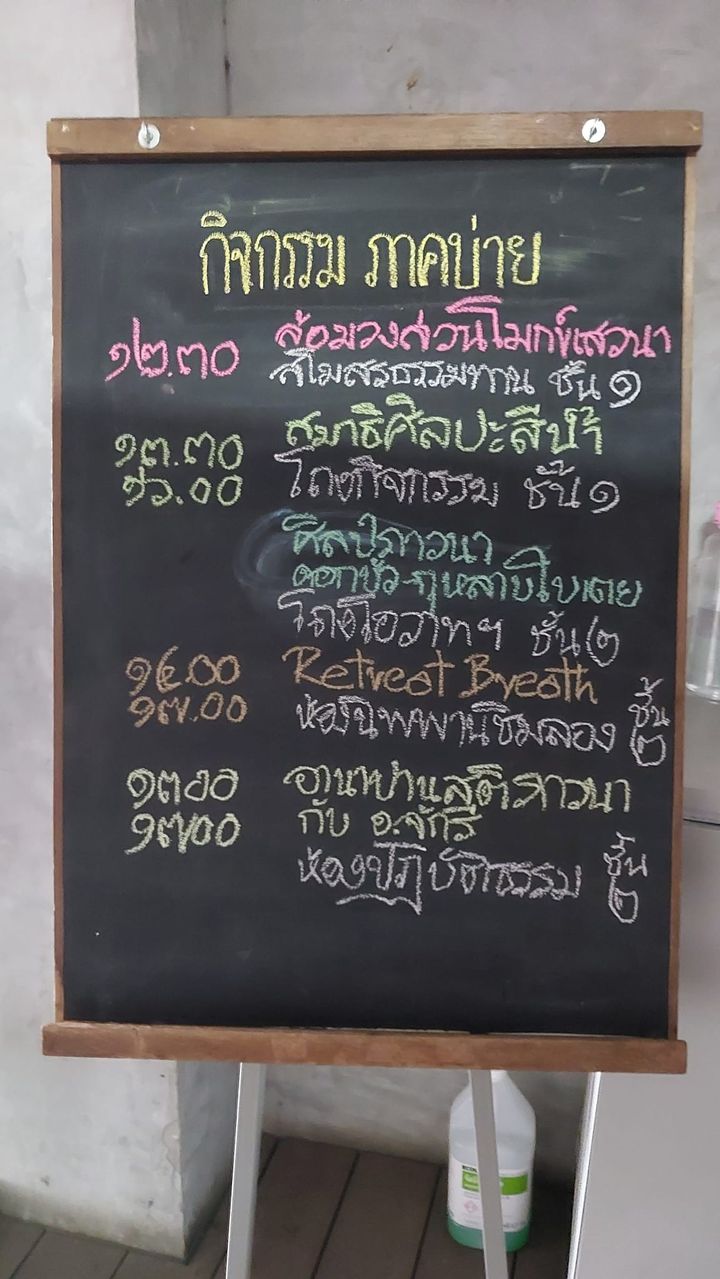 กิจกรรม ภาคบ่าย
๑๒.๓๐ ล้อมวงสวนโมกข์เสวนา
สโมสรธรรมทาน ชั้น ๑
๑๓.๓๐ สมาธิศิลปะสีน้ำ
๑๖.๐๐ โถงกิจกรรม ชั้น ๑
ศิลป์ภาวนา
ดอกบัว-กุหลาบใบเตย
โถงโอวาทฯ ชั้น ๒
๑๕.๐๐ Retreat Breath
๑๗.๐๐ ห้องนิพพานชิมลอง ชั้น ๒
๑๓๐๐ อานาปานสติภาวนา
๑๗๐๐ กับ อ.จักรี
ห้องปฏิบัติธรรม ชั้น ๒